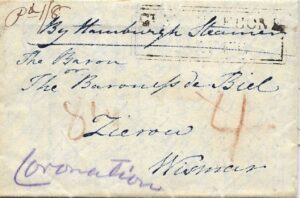 pd 1/8
By Hamburgh Steamer
The Baron
or
The Baroness de Biel
Zierow
Wismar
Coronation